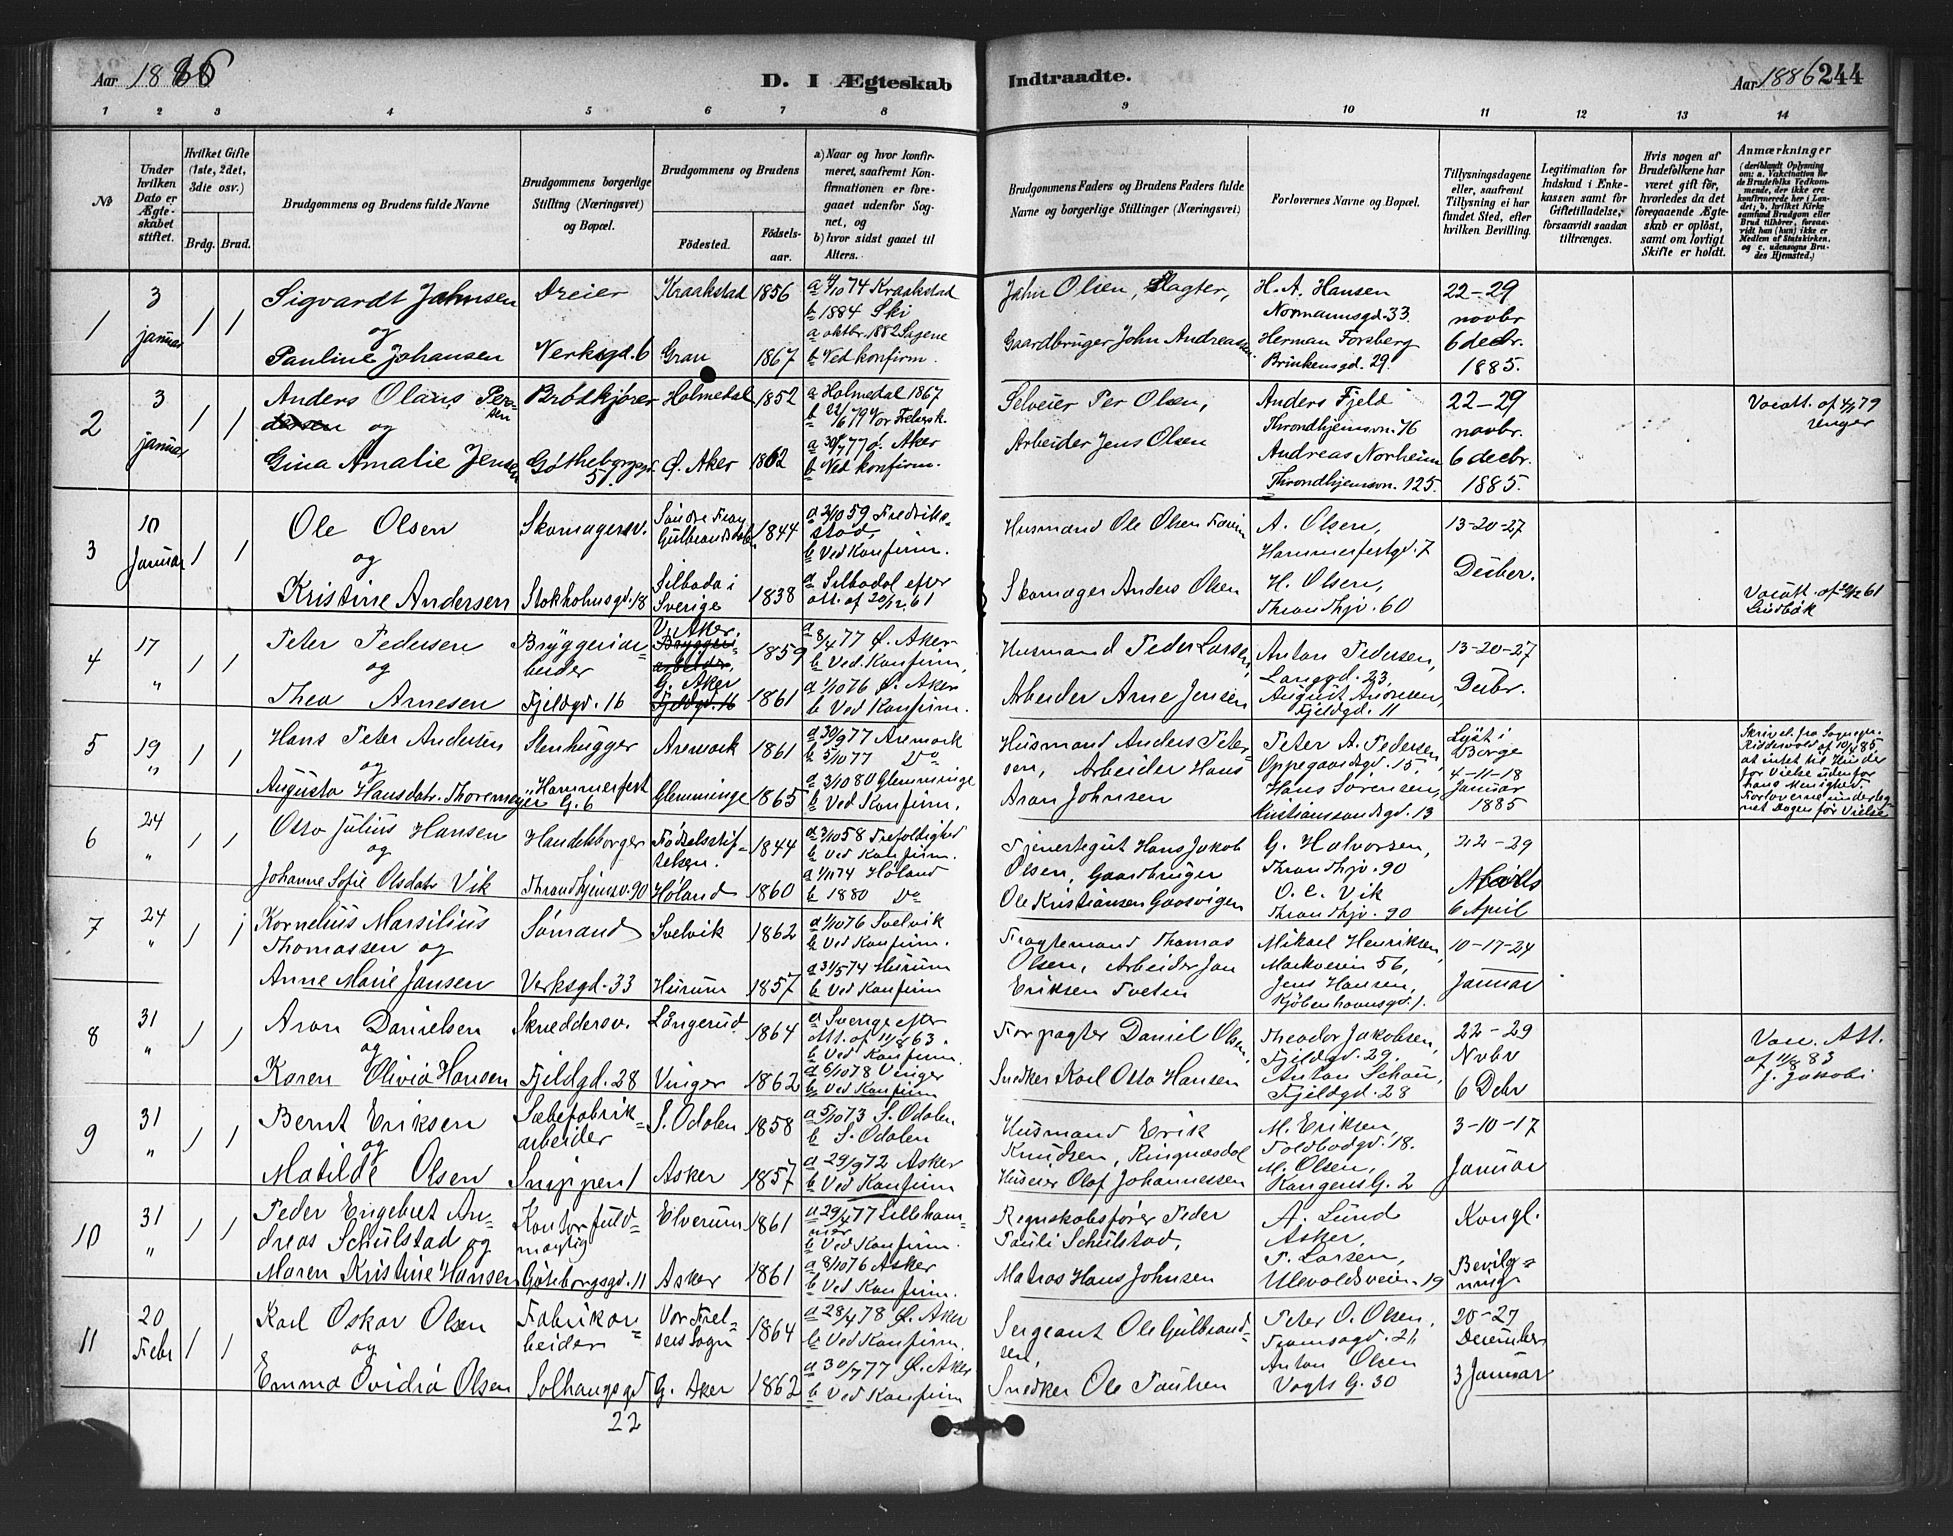 Aar 1886
D. I Ægteskab
Indtraadte.
Aar 1886 244
1 2 3 4 5 6 7 8
9 10 11 12 13 14
No
Under hvilken Dato er Ægteskabet stiftet.
Hvilket Gifte (1ste, 2det, 3die osv.)
Brdg. Brud.
Brudgommens og Brudens fulde Navne
Brudgommens borgerlige Stilling (Næringsvei) og Bopæl.
Brudgommens og Brudens
Fødested. Fødselsaar.
a) Naar og hvor konfirmeret, saafremt Konfirmationen er foregaaet udenfor Sognet, og
b) hvor sidst gaaet til Alters.
Brudgommens Faders og Brudens Faders fulde Navne og borgerlige Stillinger (Næringsvei)
Forlovernes Navne og Bopæl.
Tillysningsdagene eller, saafremt Tillysning ei har fundet Sted, efter hvilken Bevilling.
Legitimation for Indskud i Enkekassen samt for Giftetilladelse, forsaavidt saadan tiltrænges.
Hvis nogen af Brudefolkene har været gift før, hvorledes da det foregaaende Ægteskab er opløst, samt om lovligt Skifte er holdt.
Anmærkninger
(deriblandt Oplysning om: a. Vakcination for de Brudefolks Vedkommende, der ikke ere konfirmerede her i Landet; b. hvilket Kirkesamfund Brudgom eller Brud tilhører, forsaavidt han (hun) ikke er Medlem af Statskirken, og c. udensogns Brudes Hjemsted.)
1
3 januar
1 1
Sigvardt Johnsen
og
Pauline Johansen
Dreier
Verksgd. 6
Kraakstad 1856
Gran 1867
b 1884 Ski
a oktbr. 1882 Sagene
b Ved konfirm.
John Olsen, Slagter,
Gaardbruger John Andreassen
H. A. Hansen
Normannsgd. 33.
Herman Forsberg
Brinkensgd. 29.
22-29
novbr
6 decbr.
1885.
2
3 januar
1 1
Anders Olaus Persen
og
Gina Amalie Jensen
Brødkjører
Gøtheborggd. 57.
Holmedal 1852
Ø. Aker 1862
a Holmedal 1867
a 30/9 77 Ø. Aker
b Ved konfirm.
Selveier Per Olsen,
Arbeider Jens Olsen
Anders Fjeld
Throndhjemsvn. 76
Andreas Norheim
Throndhjemsvn. 125.
22-29
novbr.
6 decbr.
1885.
3
10 Januar
1 1
Ole Olsen
og
Kristine Andersen
Skomagersv.
Stokholmsgd. 18
Søndre Fron Gulbrandsdalen 1844
Silboda i Sverige 1838
a 2/10 59 Fredrikstad,
b Ved Konfirm.
a Silbodal efter
att. af 20/12 61
Husmand Ole Olsen
Skomager Anders Olsen
A. Olsen,
Hammerfestgd. 7
H. Olsen,
Throndhjv. 60
13-20-27
Decber.
Vaccatt. af 20/12 61
4
17 "
1 1
Peter Pedersen
og
Thea Arnesen
Bryggeriarbeider
Fjeldgd. 16
V. Aker. 1859
G. Aker 1861
a 8/4 77 Ø. Aker
b Ved Konfirm,
a 1/10 76 Ø. Aker
b Ved Konfirm.
Husmand Peder Larsen,
Arbeider Arne Jensen
Anton Pedersen,
Langgd. 23,
August Andresen,
Fjeldgd. 11
13-20-27
Decbr.
5
19 "
1 1
Hans Peter Andersen
og
Augusta Hansdatr. Thoremoyen
Stenhugger
Hammerfest G. 6
Aremark 1861
Glemminge 1865
a 30/9 77 Aremark
b 5/10 77 Do
a 3/10 80 Glemminge
b Ved Konfirm.
Husmand Anders Petersen,
Arbeider Hans
Aron Johnsen
Peter A. Pedersen,
Oppegaardsgd. 15,
Hans Sørensen,
Kristianssandsgd. 13
Lyst i Borge
4-11-18
Januar
1885
Skrivel. fra Sognepr.
Ridderwold af 10/4 85,
at intet til Hinder
for Vielse udenfor
hans Menighed.
6
24 "
1 1
Otto Julius Hansen
og
Johanne Sofie Olsdatr Vik
Handelsborger
Throndhjemsv. 90
Fødselsstiftelsen. 1844
Høland 1860
a 3/10 58 Trefoldighed
b Ved Konfirm.
a 1/11 74 Høland
b 1880 Do
Tjenestegut Hans Jakob
Olsen, Gaardbruger
Ole Kristiansen Gaasvigen
G. Halvorsen,
Throndhjv. 90
O. C. Vik
Throndhjv. 90
22-29
Marts
6 April
7
24 "
1 1
Kornelius Marsilius
Thomassen og
Anne Marie Jansen
Sømand
Verksgd. 33
Svelvik 1862
Hurum 1857
a 1/10 76 Svelvik
b Ved Konfirm.
a 31/5 74 Hurum
b Ved Konfirm
Fragtemand Thomas
Olsen, Arbeider Jan
Eriksen Tveten
Mikael Henriksen,
Markveien 56,
Jens Hansen,
Kjøbenhavnsgd. 1.
10-17-24
Januar
8
31 "
1 1
Aron Danielsen
og
Karen Olivia Hansen
Skreddersv.
Fjeldgd. 28
Långerud 1864
Vinger 1862
a Sverige efter
b Ved Konfirm.
a 6/10 78 Vinger
b Ved Konfirm
Forpagter Daniel Olsen,
Snedker Karl Otto Hansen
Theodor Jakobsen,
Fjeldgd. 29,
Anton Schou,
Fjeldgd. 28
22-29
Nvbr
6 Debr
Vac. Att.
J. Jakobi
9
31 "
1 1
Bernt Eriksen
og
Matilde Olsen
Sæbefabrikarbeider
Snippen 1
S. Odalen 1858
Asker 1857
a 5/10 73 S. Odalen
b S. Odalen
a 29/9 72 Asker
b Ved Konfirm
Husmand Erik
Knudsen, Ringnæsdal
Huseier Olaf Johannessen
M. Eriksen,
Toldbodgd. 18.
M. Olsen,
Kongens G. 2
3-10-17
Januar
10
31 "
1 1
Peder Engebret Andreas Schulstad og
Maren Kristine Hansen
Kontorfuldmægtig
Gøteborgsgd. 11
Elverum 1861
Asker 1861
a 29/4 77 Lillehammer
b Ved Konfirm.
a 8/10 76 Asker
b Ved Konfirm.
Regnskabsfører Peder
Pauli Schulstad,
Matros Hans Johnsen
A. Lund
Asker,
P. Larsen,
Ulevoldsveien 19
Kongl.
Bevilgning
11
20 Febr
1 1
Karl Oskar Olsen
og
Emma Ovidia Olsen
Fabrikarbeider
Solhaugsgd
22
Vor Frelsers Sogn 1864
G. Aker 1862
a 28/4 78 Ø. Aker
b Ved Konfirm.
a 30/9 77 Ø. Aker
b Ved Konfirm
Sergeant Ole Gulbrandsen,
Snedker Ole Paulsen
Peter O. Olsen,
Framsgd. 21,
Anton Olsen
Vogts G. 30
20-27
December
3 Januar